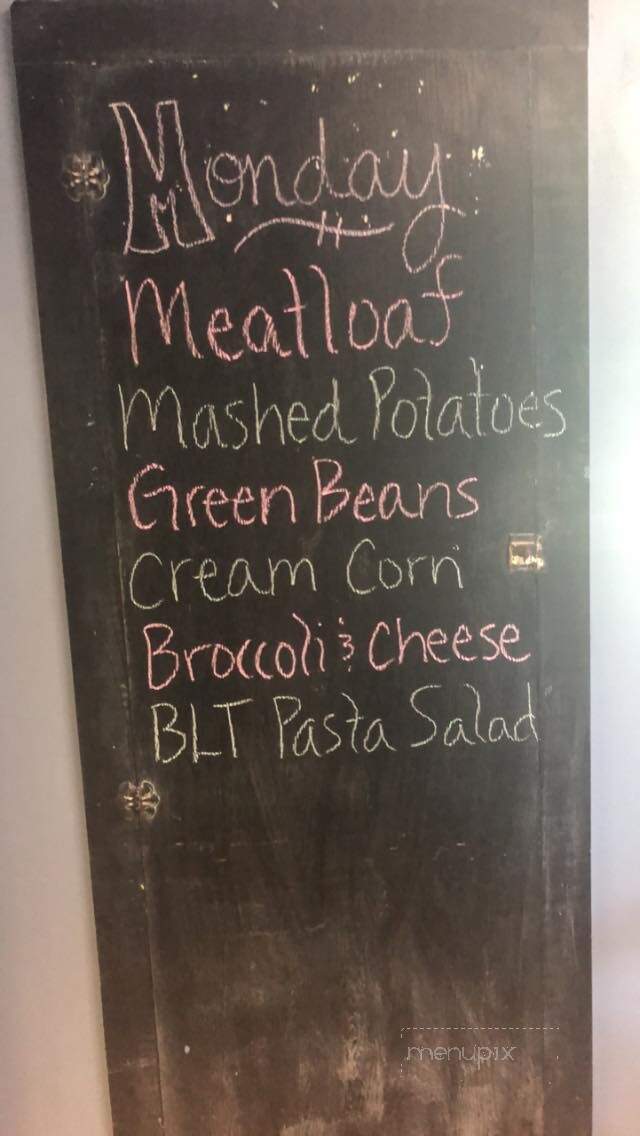 Monday
Meatloaf
Mashed Potatoes
Green Beans
Cream Corn
Broccoli & Cheese
BLT Pasta Salad
menupix